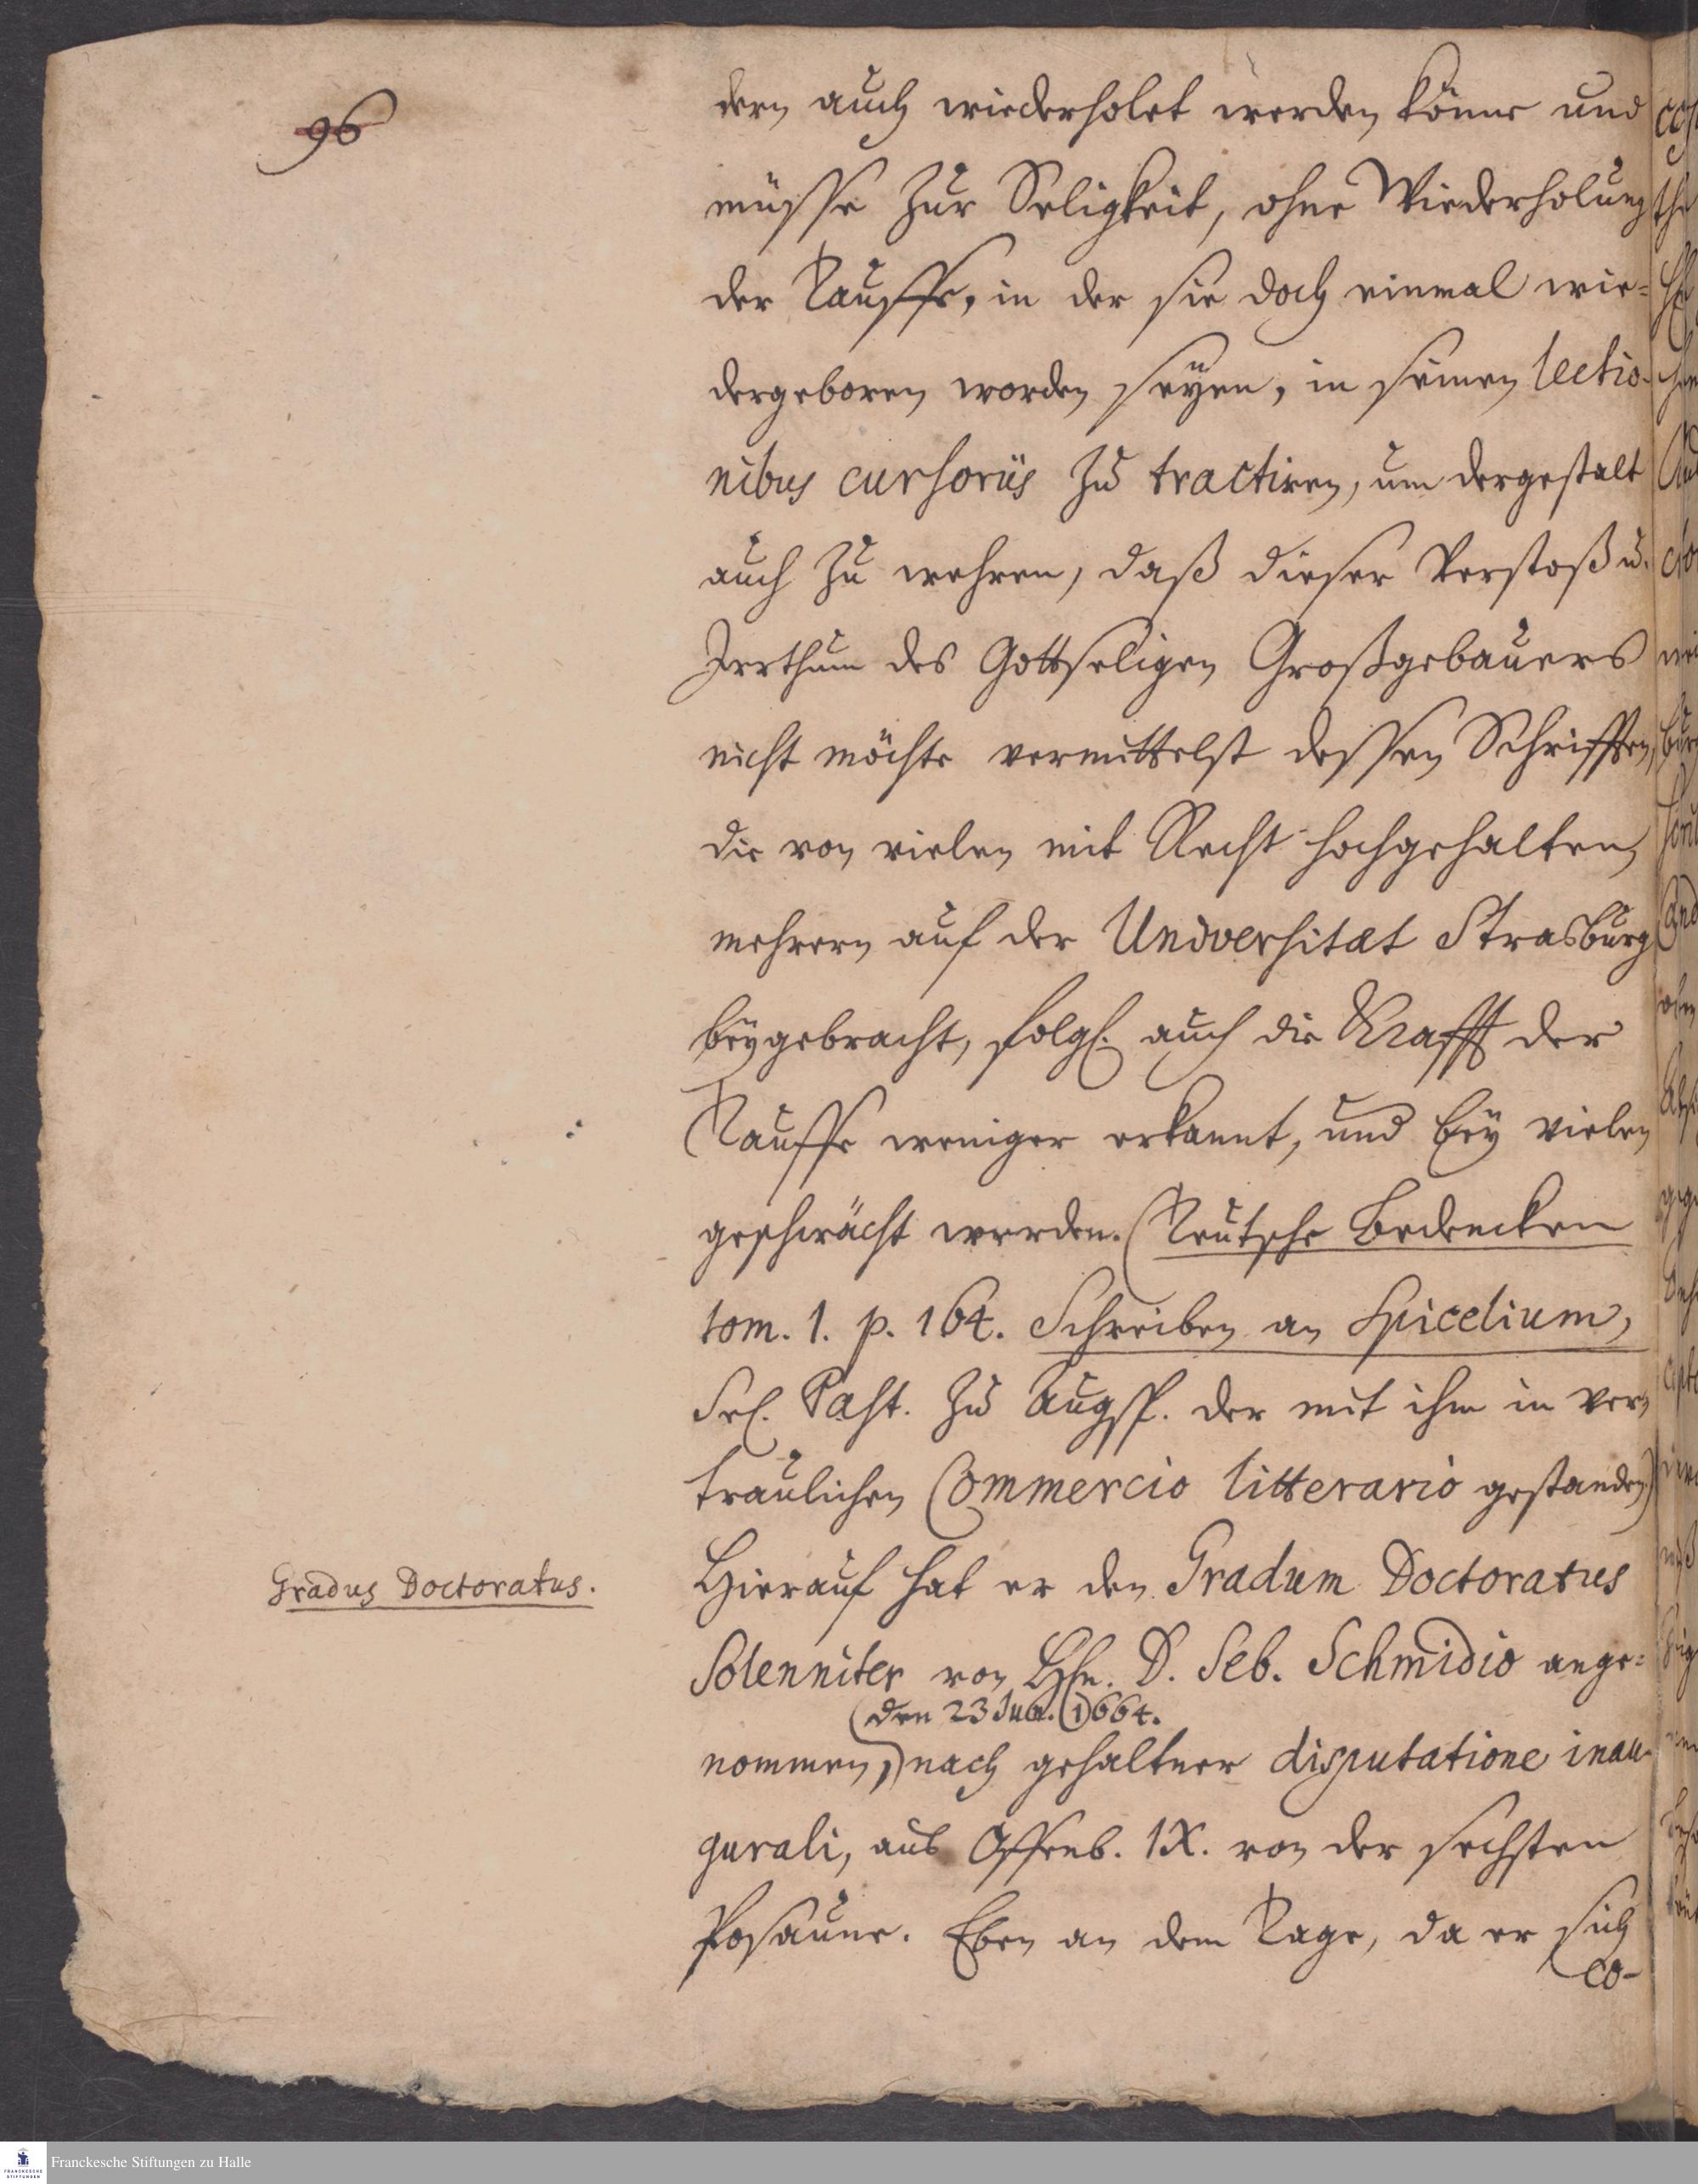 96
dern auch wiederholet werden könne und
müsse zur Seligkeit, ohne Wiederholung
der Tauffe, in der sie doch einmal wie-
dergeboren worden seyen, in seinen lectio-
nibus cursoriis zu tractiren, um dergestalt
auch zu wehren, daß dieser Verstoß u.
Irrthum des Gottseligen Großgebauers
nicht möchte vermittelst dessen Schrifften,
die von vielen mit Recht hochgehalten,
mehrern auf der Universitæt Strasburg
beygebracht, folgl. auch die Krafft der
Tauffe weniger erkannt, und bey vielen
geschwächt werden. (Teutsche Bedencken
tom. 1. p. 164. Schreiben an Spicelium,
Sel. Past. zu Augsp. der mit ihm in ver-
traulichen Commercio litterario gestanden)
Gradus Doctoratus.
Hierauf hat er den Gradum Doctoratus
Solenniter von Hln. D. Seb. Schmidio ange-
(den 23 Jun. 1664.
nommen,) nach gehaltner disputatione inau-
gurali, aus Offenb. IX. von der sechsten
Posaune. Eben an dem Tage, da er sich
co-
Franckesche Stiftungen zu Halle
FRANCKESCHE
STIFTUNGEN